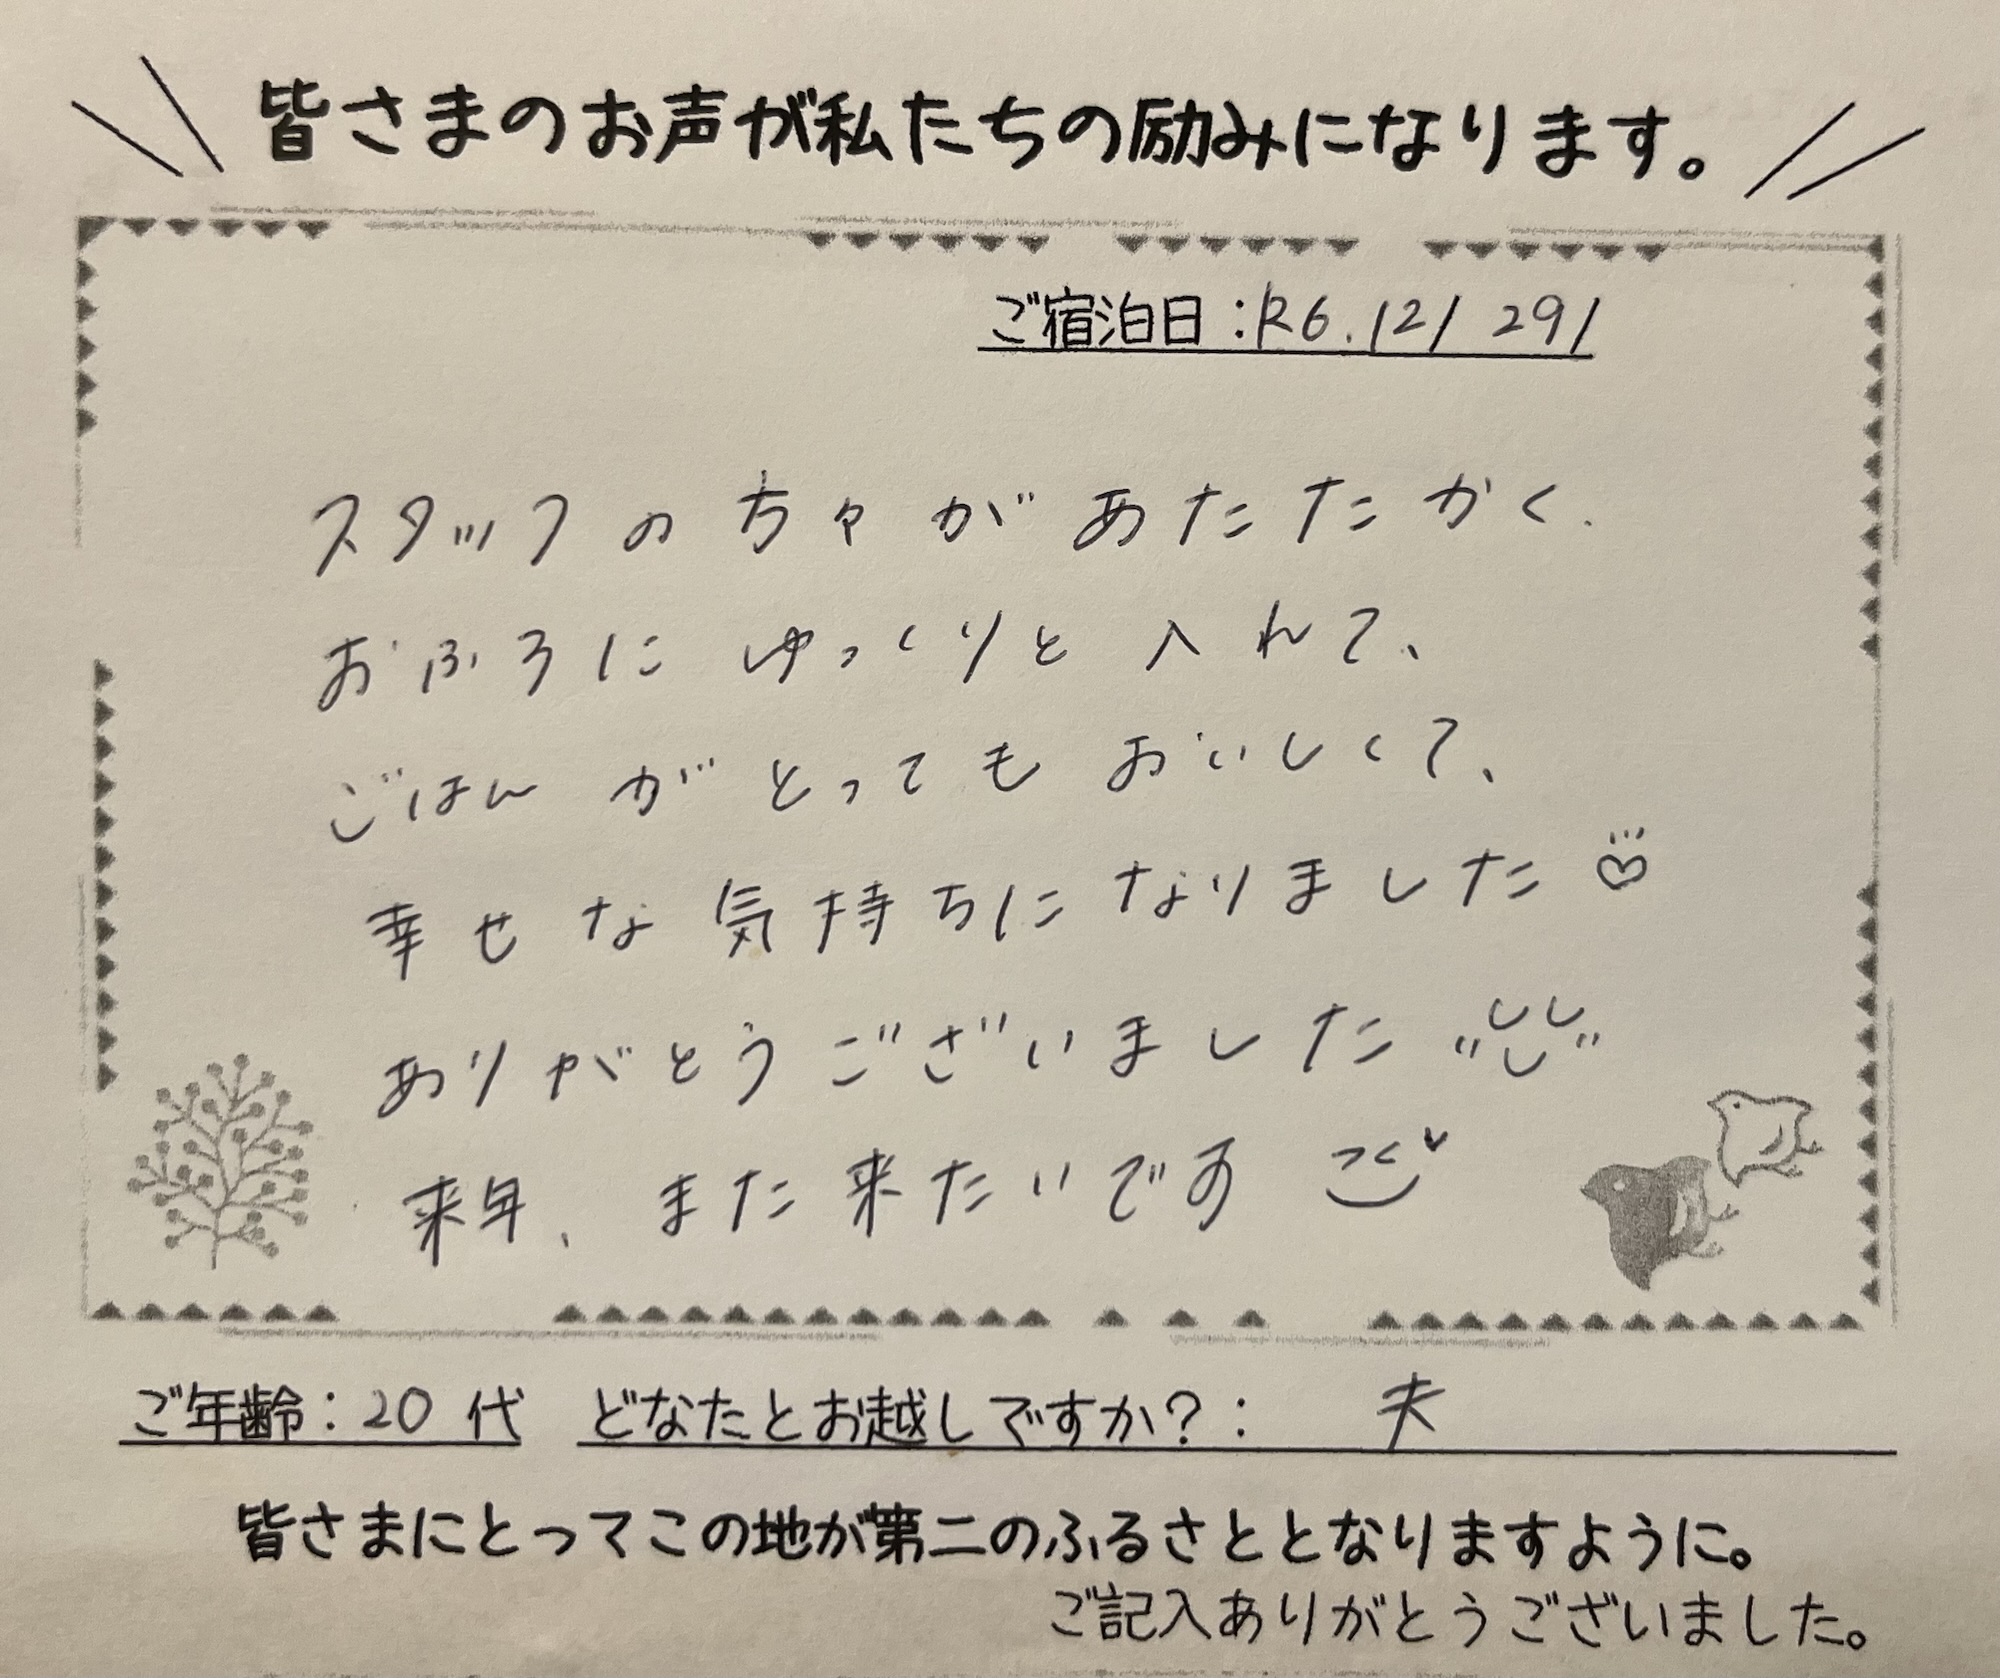 皆さまのお声が私たちの励みになります。
ご宿泊日:R6.12/ 29/
スタッフの方々があたたかく、
おふろにゆっくりと入れて、
ごはんがとってもおいしくて、
幸せな気持ちになりました♡
ありがとうございました
来年、また来たいです
ご年齢:20代 どなたとお越しですか?: 夫
皆さまにとってこの地が第二のふるさととなりますように。
ご記入ありがとうございました。